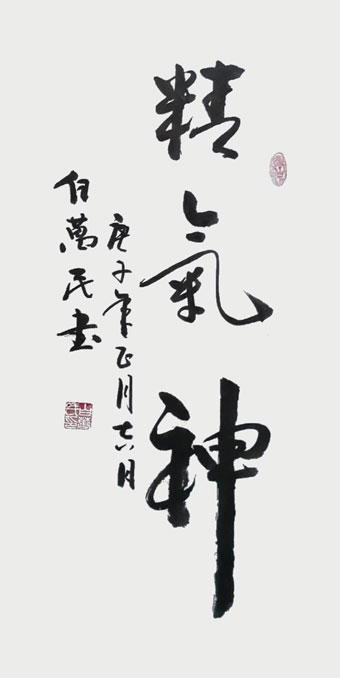 精氣神
庚子年正月十六日
任萬民書